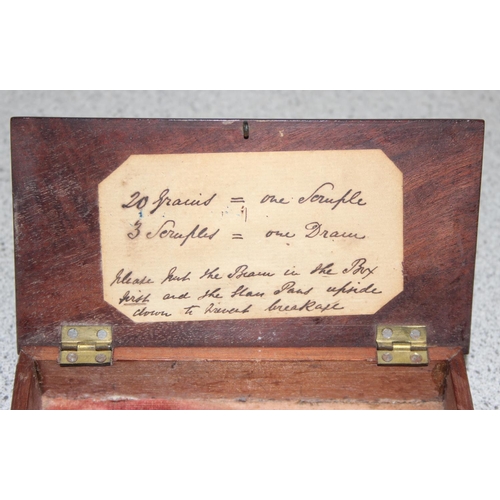 20 Grains = one Scruple
3 Scruples = one Dram
Please Put the Beam in the Box
first and the Glass Pans upside
down to Prevent breakage